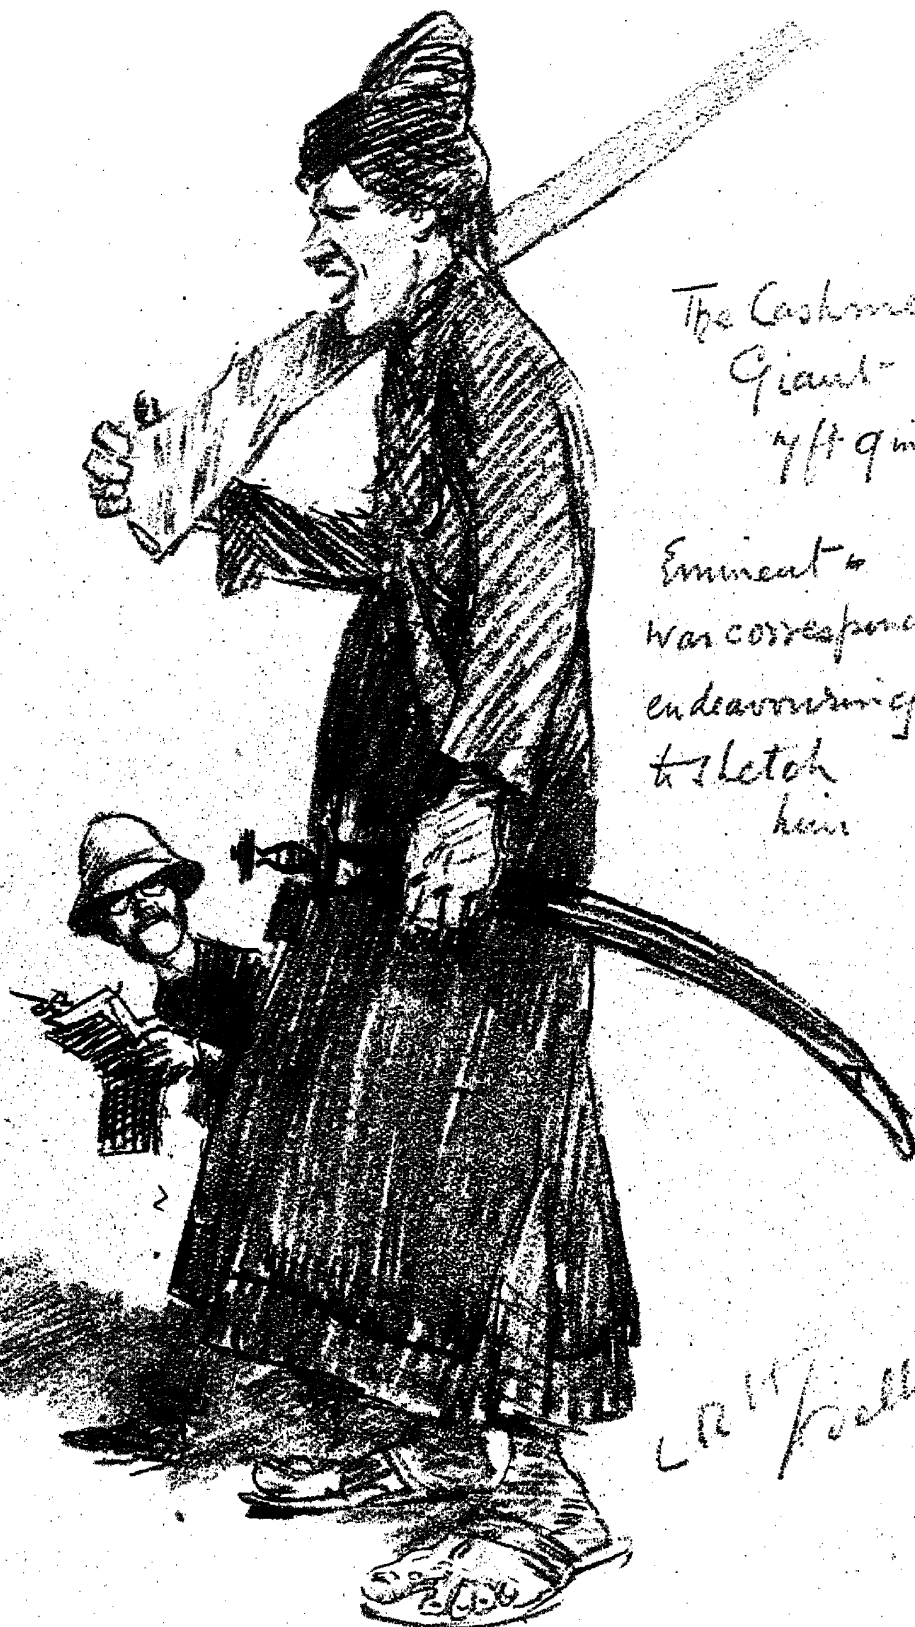 The Cashme
Giant
7 ft 9 in
Eminent
war correspond
endeavouring
to sketch
him